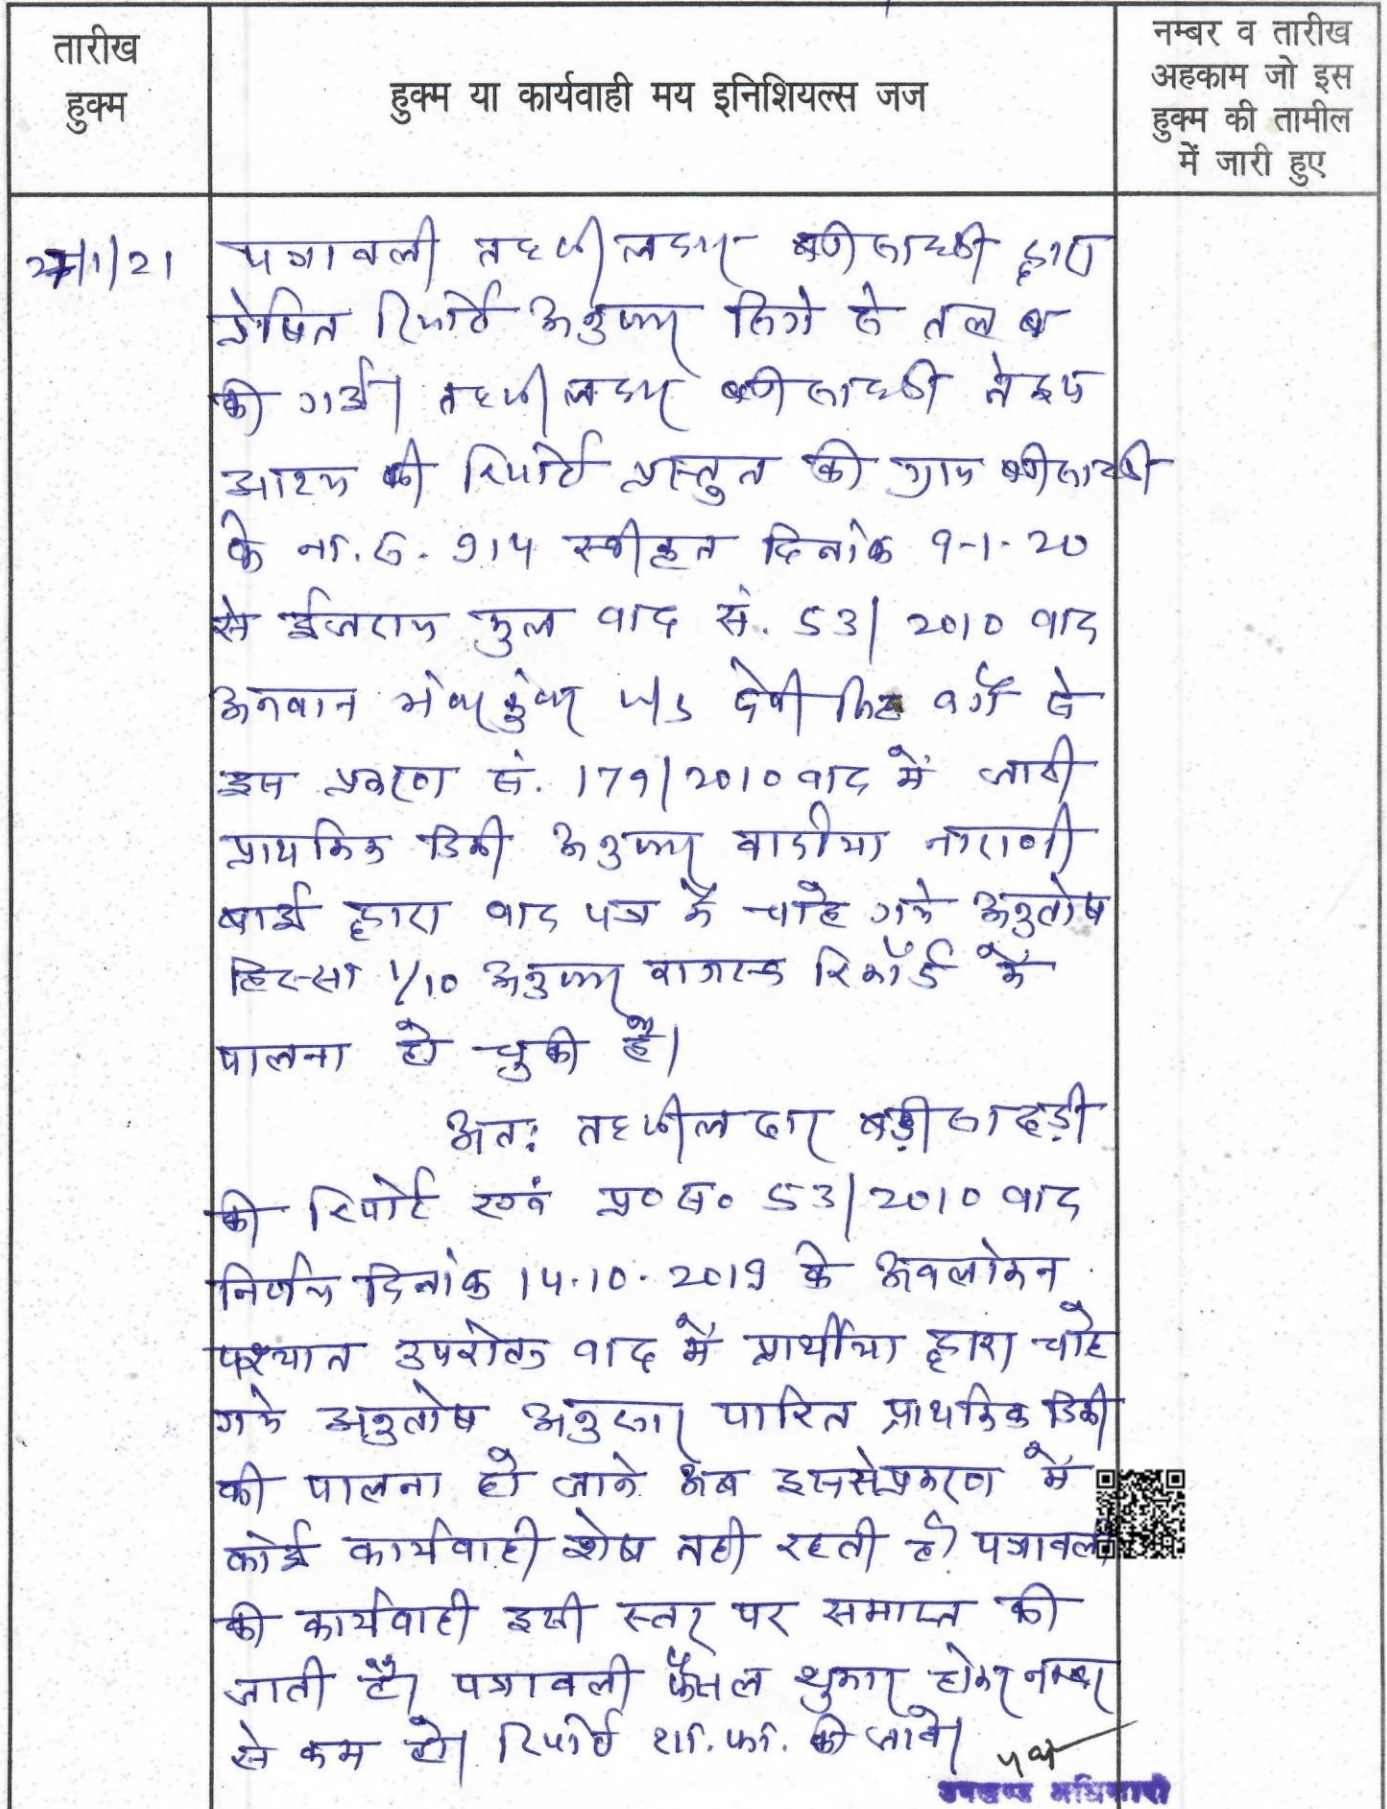 तारीख
हुक्म
हुक्म या कार्यवाही मय इनिशियल्स जज
नम्बर व तारीख
अहकाम जो इस
हुक्म की तामील
में जारी हुए
27/1/21
पत्रावली तहसीलदार बड़ीसादड़ी द्वारा
प्रेषित रिपोर्ट अनुसार से तलब
की गई। तहसीलदार बड़ीसादड़ी ने इस
आशय की रिपोर्ट प्रस्तुत की ग्राम बड़ीसादड़ी
के ना.सं. 914 स्वीकृत दिनांक 9-1-20
से ईजराय मूल वाद सं. 53/2010 वाद
अनवान भंवर कुंवर देवीसिंह वगै से
इस प्रकरण सं. 179/2010 वाद में जारी
प्राथमिक डिक्री अनुसार वादीया नाराणी
बाई द्वारा वाद पत्र में चाहे गये अनुतोष
हिस्सा 1/10 अनुसार राजस्व रिकॉर्ड में
पालना हो चुकी है।
अतः तहसीलदार बड़ीसादड़ी
की रिपोर्ट एवं प्र० स० 53/2010 वाद
निर्णय दिनांक 14.10.2019 के अवलोकन
पश्चात उपरोक्त वाद में प्रार्थीया द्वारा चाहे
गये अनुतोष अनुसार पारित प्राथमिक डिक्री
की पालना हो जाने अब इससे प्रकरण में
कोई कार्यवाही शेष नही रहती है। पत्रावली
की कार्यवाही इसी स्तर पर समाप्त की
जाती है। पत्रावली फैसल शुमार होकर नम्बर
से कम हो। रिपोर्ट शा.फा. की जावे।
उपखण्ड अधिकारी